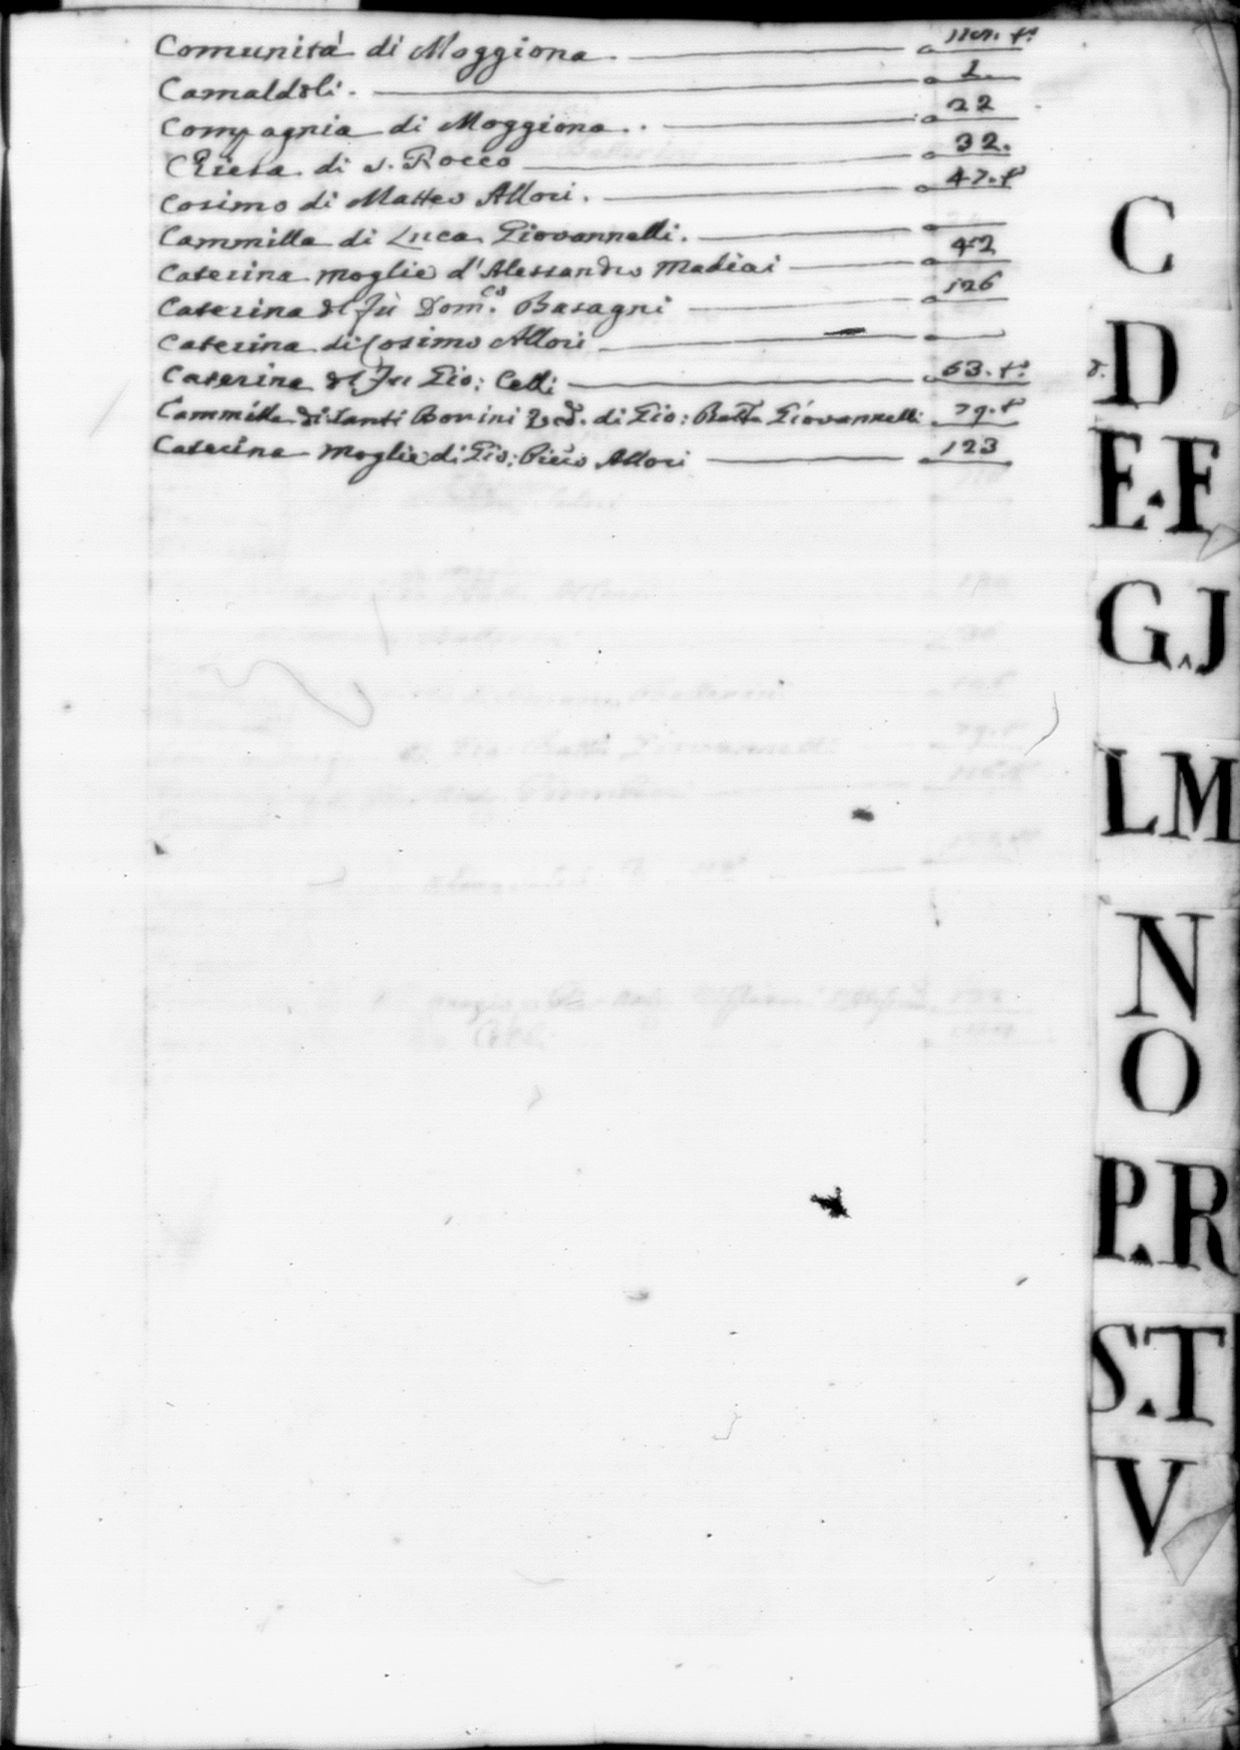 Comunità di Moggiona
Camaldoli. 1.
Compagnia di Moggiona.. 22
Chiesa di S. Rocco 32.
Cosimo di Matteo Allori. 47. t°
Cammilla di Luca Giovannelli.
Caterina moglie d'Alessandro Madiai 42
Caterina del fù Dom.co Basagni 126
Caterina di Cosimo Allori
Caterina del fu Gio: Celli 63. t°
Cammilla di Santi Bonini di Gio: Batta Giovannelli 79. t°
Caterina moglie di Gio: Piero Allori 123
C
D
E.F
G.J
LM
N
O
P.R
S.T
V